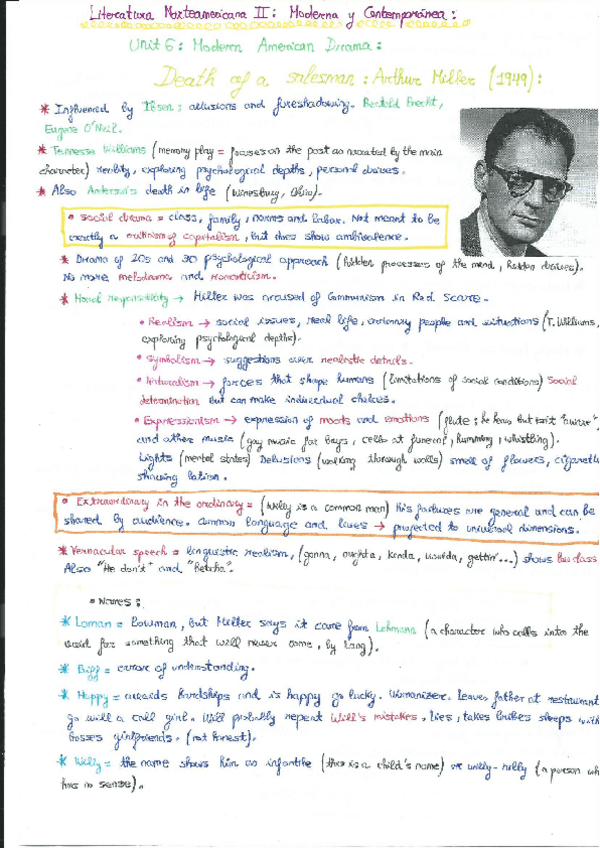 Literatura Norteamericana II: Moderna y Contemporánea:
Unit 6: Modern American Drama:
Death of a salesman: Arthur Miller (1949):
* Influenced by Ibsen: allusions and foreshadowing. Bertold Brecht,
Eugene O'Neil.
* Tennesse Williams (memory play = focuses on the past as narrated by the main
character) reality, exploring psychological depths, personal desires.
* Also Anderson's death in life (Winesburg, Ohio).
• Social drama = class, family, norms and labor. Not meant to be
exactly a criticism of capitalism, but does show ambivalence.
* Drama of 20s and 30 psychological approach (hidden processes of the mind, hidden desires).
No more melodrama and romanticism.
* Moral responsibility → Miller was accused of Communism in Red Scare.
• Realism → social issues, real life, ordinary people and situations (T. Williams,
exploring psychological depths).
• Symbolism → suggestions over realistic details.
• Naturalism → forces that shape humans (limitations of social conditions) Social
determination but can make individual choices.
• Expressionism → expression of moods and emotions (flute; he hears but isn't "aware")
and other music (gay music for boys, cello at funeral, humming, whistling).
Lights (mental states) Delusions (walking through walls) smell of flowers, cigarette
shaving lotion.
• Extraordinary in the ordinary = (Willy is a common man) His failures are general and can be
shared by audience. Common language and lives → projected to universal dimensions.
* Vernacular speech = linguistic realism, (gonna, oughta, kinda, woulda, gettin'...) shows low class
Also "He don't" and "Betcha".
• Names:
* Loman = Lowman, but Miller says it came from Lohmann (a character who calls into the
void for something that will never come, by Lang).
* Biff = error of understanding.
* Happy = avoids hardships and is happy go lucky. Womanizer. Leaves father at restaurant
go with a call girl. Will probably repeat Will's mistakes. Lies, takes bribes sleeps with
bosses girlfriends. (not honest).
* Willy = the name shows him as infantile (this is a child's name) or willy-nilly (a person who
has no sense).